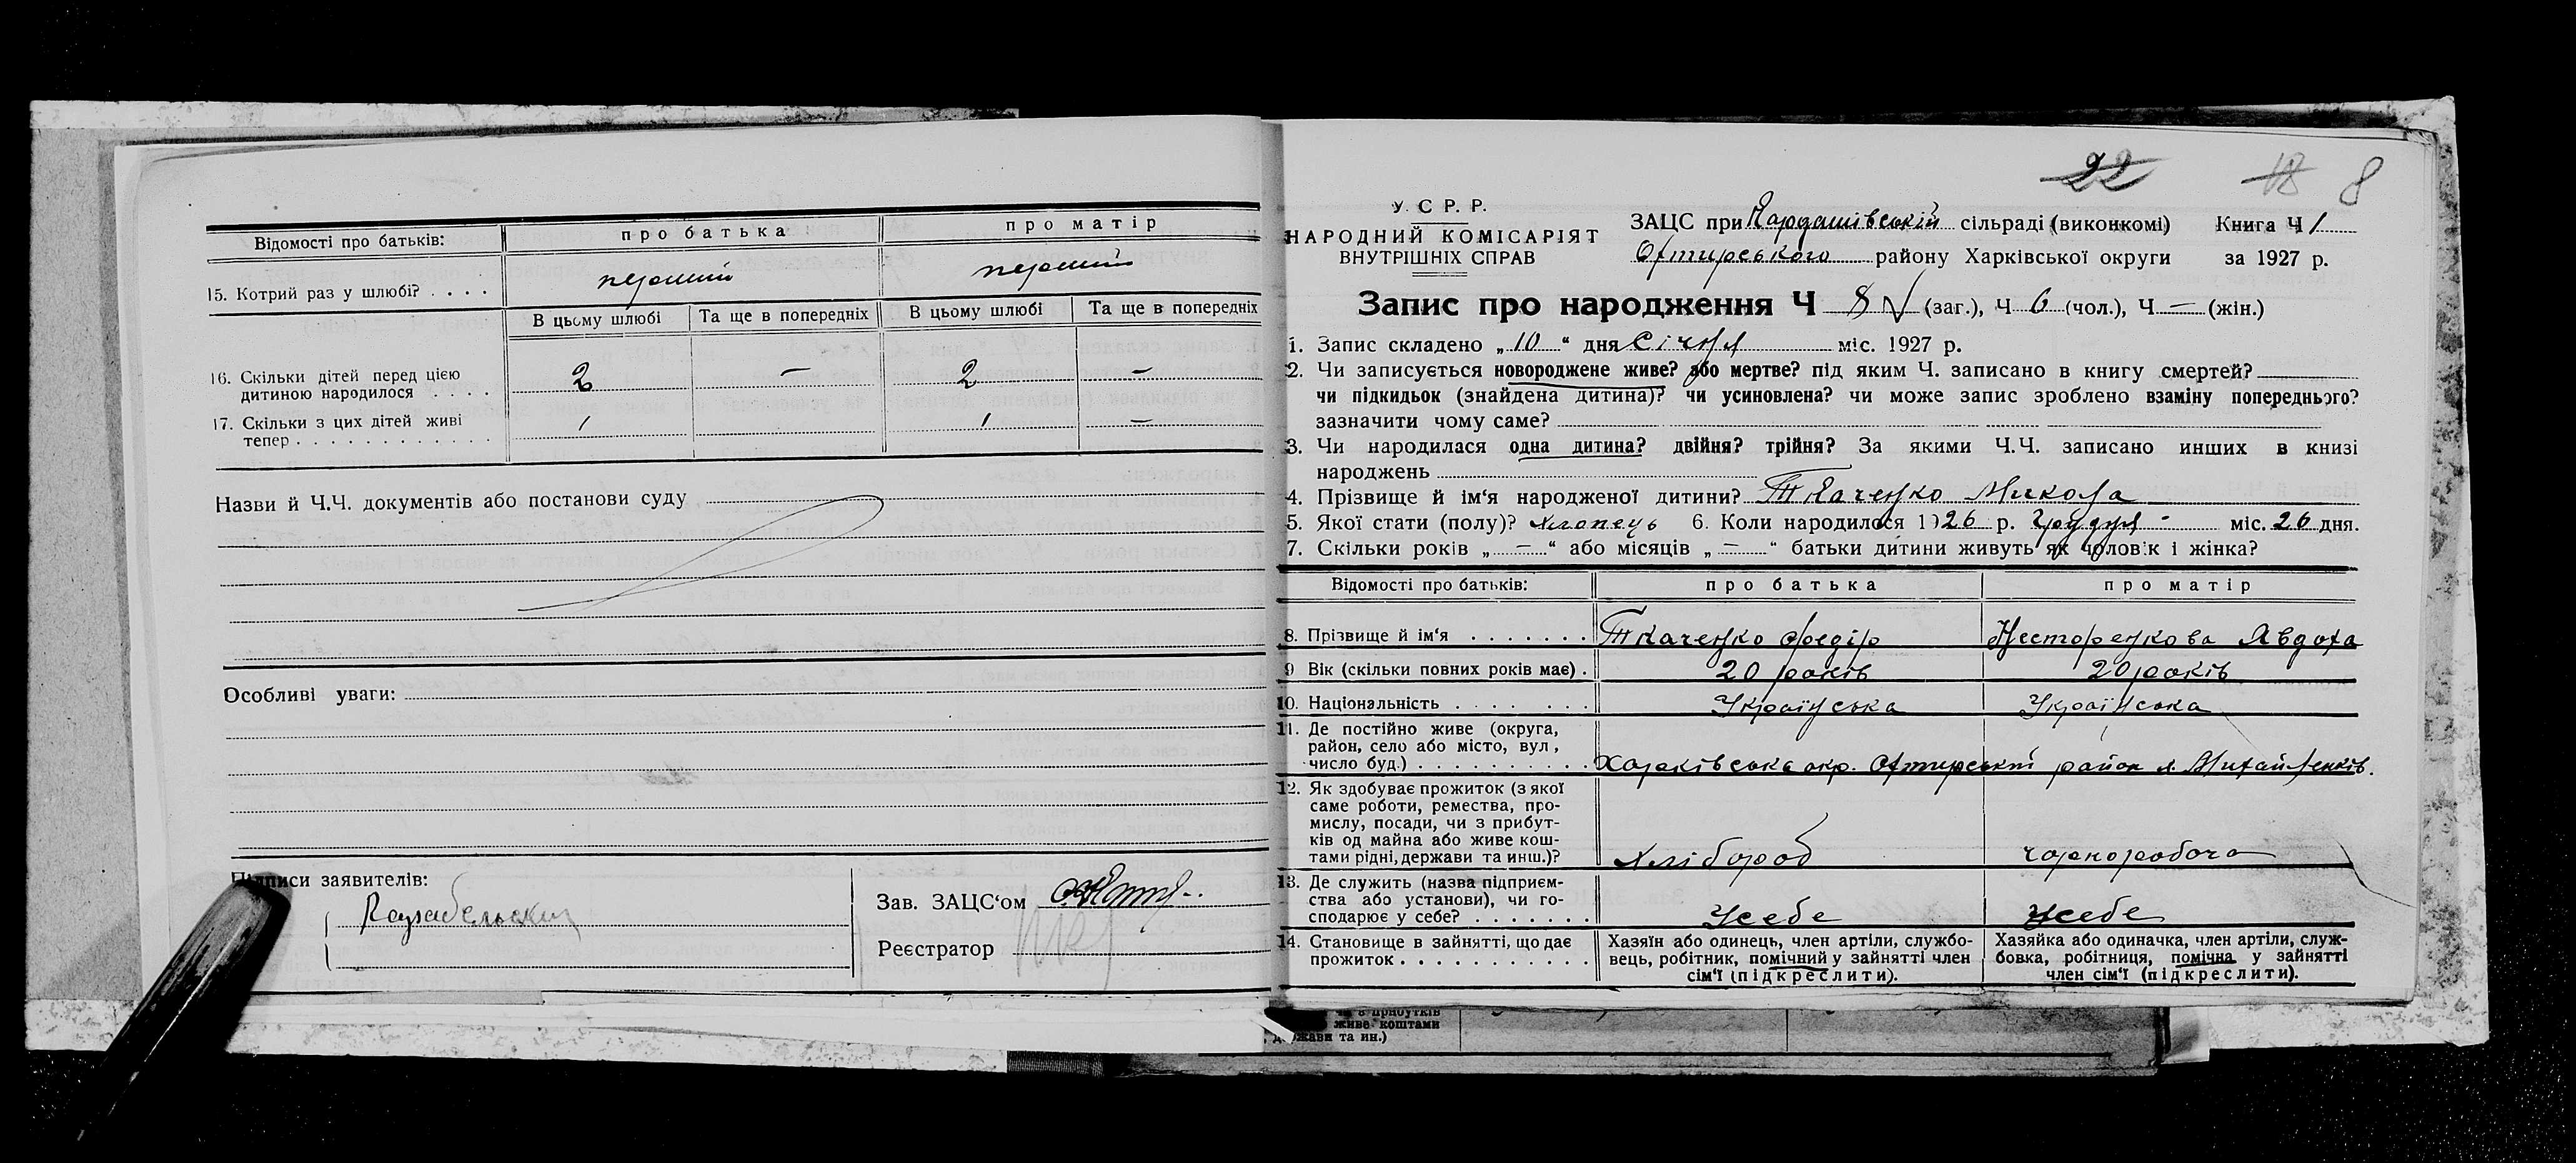 Відомості про батьків: про батька про матір
15. Котрий раз у шлюбі? . . . . перший перший
В цьому шлюбі Та ще в попередніх В цьому шлюбі Та ще в попередніх
16. Скільки дітей перед цією
дитиною народилося . . . . 2 — 2 —
17. Скільки з цих дітей живі
тепер . . . . . . . . . . . . 1 1 —
Назви й Ч.Ч. документів або постанови суду
Особливі уваги:
Підписи заявителів:
Зав. ЗАЦС‘ом
Реєстратор
22 18 8
У. С Р. Р.
НАРОДНИЙ КОМІСАРІЯТ
ВНУТРІШНІХ СПРАВ
ЗАЦС при Кардашівській сільраді (виконкомі) Книга Ч 1
Охтирського району Харківської округи за 1927 р.
Запис про народження Ч 8 (заг.), Ч 6 (чол.), Ч — (жін.)
1. Запис складено „10“ дня Січня міс. 1927 р.
2. Чи записується новороджене живе? або мертве? під яким Ч. записано в книгу смертей?
чи підкидьок (знайдена дитина)? чи усиновлена? чи може запис зроблено взаміну попереднього?
зазначити чому саме?
3. Чи народилася одна дитина? двійня? трійня? За якими Ч.Ч. записано инших в книзі
народжень
4. Прізвище й ім‘я народженої дитини? Ткаченко Микола
5. Якої стати (полу)? хлопець 6. Коли народилося 1926 р. Грудня міс. 26 дня.
7. Скільки років „—“ або місяців „—“ батьки дитини живуть як чолов:к і жінка?
Відомості про батьків: про батька про матір
8. Прізвище й ім‘я . . . . . . . Ткаченко Федір Несторенкова Явдоха
9 Вік (скільки повних років має) . 20 років 20 років
10. Національність . . . . . . . Українська Українська
11. Де постійно живе (округа,
район, село або місто, вул,
число буд.) . . . . . . . . . . Харківська окр. Охтирський район х. Михайленків.
12. Як здобуває прожиток (з якої
саме роботи, ремества, про-
мислу, посади, чи з прибут-
ків од майна або живе кош-
тами рідні, держави та инш.)? Хлібороб чорноробоча
13. Де служить (назва підприєм-
ства або установи), чи го-
сподарює у себе? . . . . . . . Усебе Усебе
14. Становище в зайнятті, що дає
прожиток . . . . . . . . . . .
Хазяїн або одинець, член артіли, службо-
вець, робітник, помічний у зайнятті член
сім‘ї (підкреслити).
Хазяйка або одиначка, член артіли, служ-
бовка, робітниця, помічна у зайнятті
член сім‘ї (підкреслити).
живе коштами
та ин.)